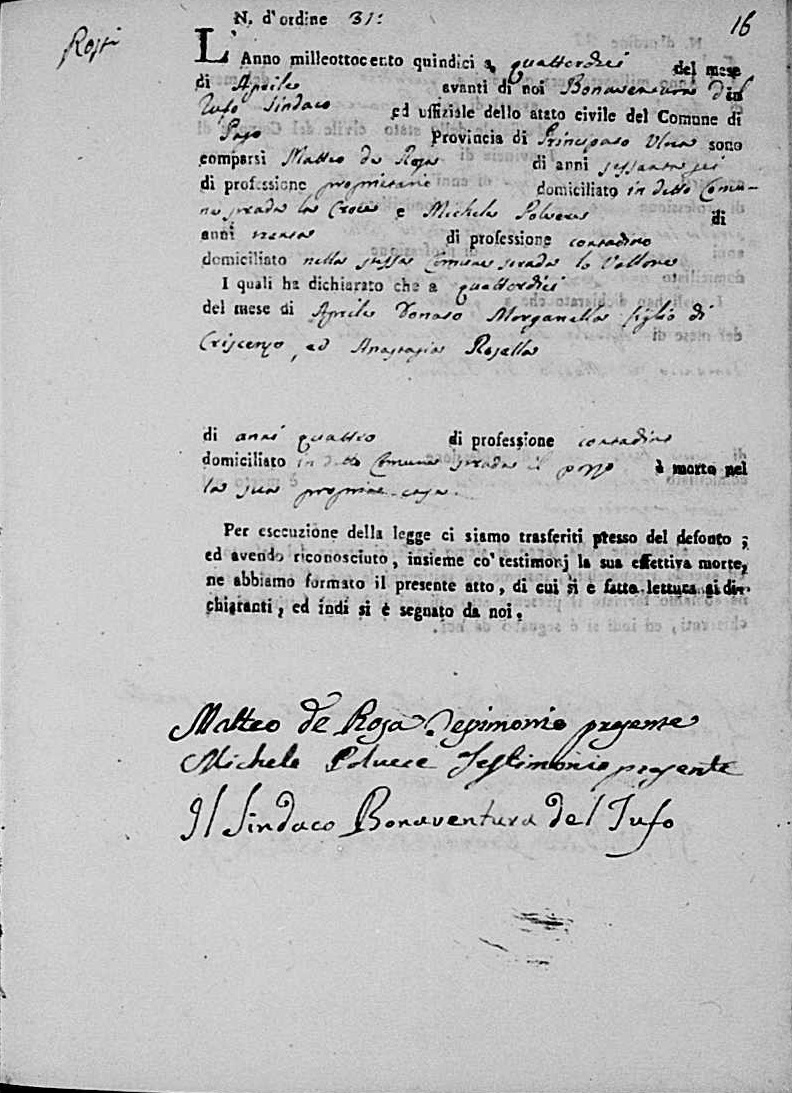 N. d'ordine 31:
16
L'Anno milleottocento quindici a quattordici del mese
di Aprile avanti di noi Bonaventura del
Tufo Sindaco ed uffiziale dello atato civile del Comune di
Provincia di Principato Ultra sono
comparsi Matteo de Rosa di anni sessantasei
di professione proprietario domiciliato in detto Comu-
ne strada la Croce e Michele Polvere di
anni trenta di professione contadino
domiciliato nello stesso Comune strada lo Vallone
I quali ha dichiarato che a quattordici
del mese di Aprile Donato Morganella figlio di
Criscenzo, ed Anastasia Rosella
di anni quattro di professione contadino
domiciliato in detto Comune strada il pozzo è morto nel
la sua propria casa.
Per esecuzione della legge ci siamo trasferiti presso del defonto ;
ed avendo riconosciuto, insieme co' testimonj la sua effettiva morte,
ne abbiamo formato il presente atto, di cui si è fatta lettura ai di-
chiaranti, ed indi si è segnato da noi.
Matteo de Rosa Testimonio presente
Michele Polvere Testimonio presente
Il Sindaco Bonaventura del Tufo